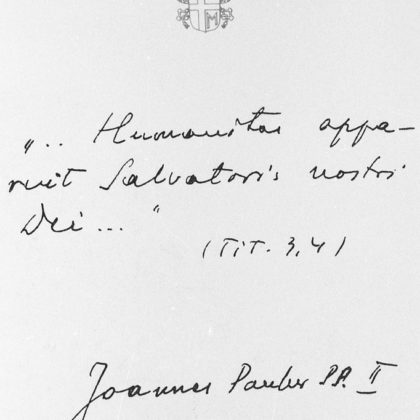 „.. Humanitas appa-
ruit Salvatoris nostri
Dei ..."
(Tit. 3,4)
Joannes Paulus PP. II